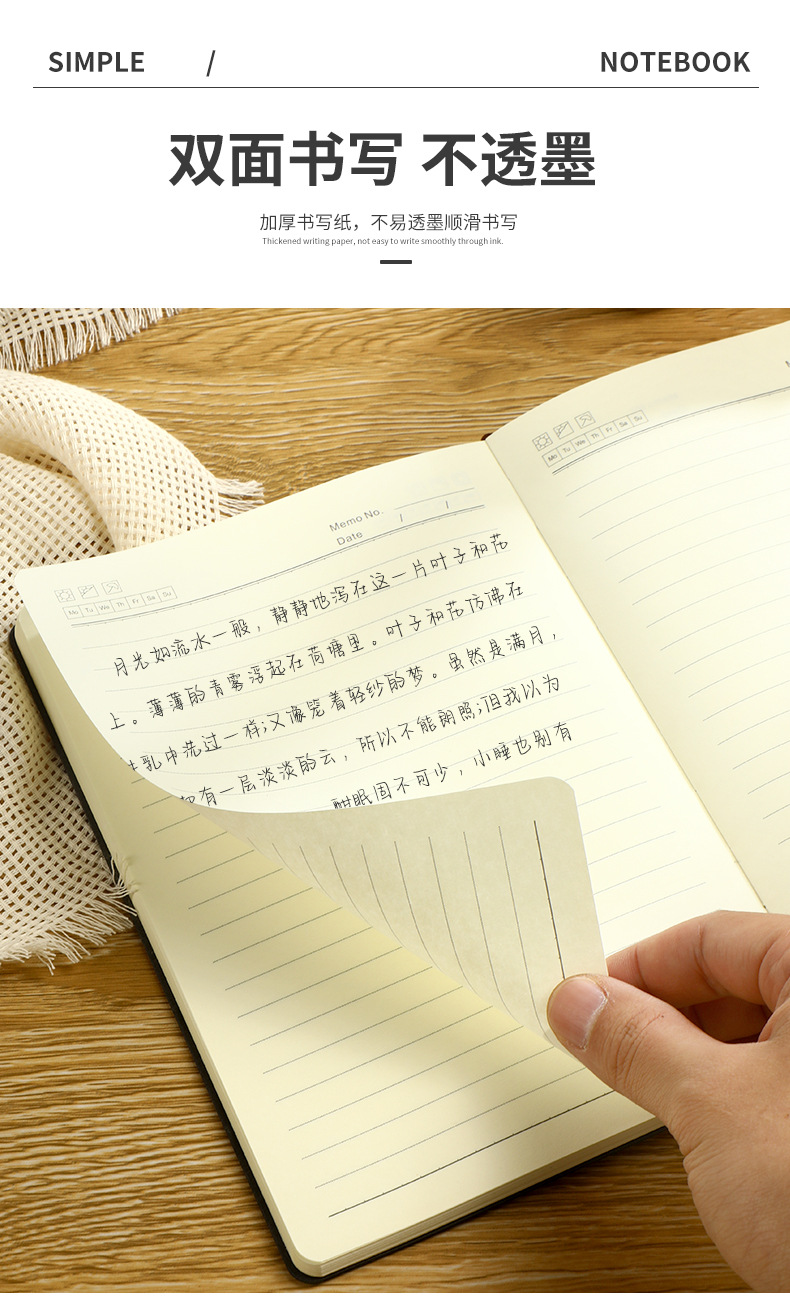 SIMPLE / NOTEBOOK
双面书写 不透墨
加厚书写纸，不易透墨顺滑书写
Thickened writing paper, not easy to write smoothly through ink.
Memo No.
Date / /
Mo Tu We Th Fr Sa Su
月光如流水一般，静静地泻在这一片叶子和花
上。薄薄的青雾浮起在荷塘里。叶子和花仿佛在
乳中洗过一样;又像笼着轻纱的梦。虽然是满月，
有一层淡淡的云，所以不能朗照;但我以为
酣眠固不可少，小睡也别有
Mo Tu We Th Fr Sa Su